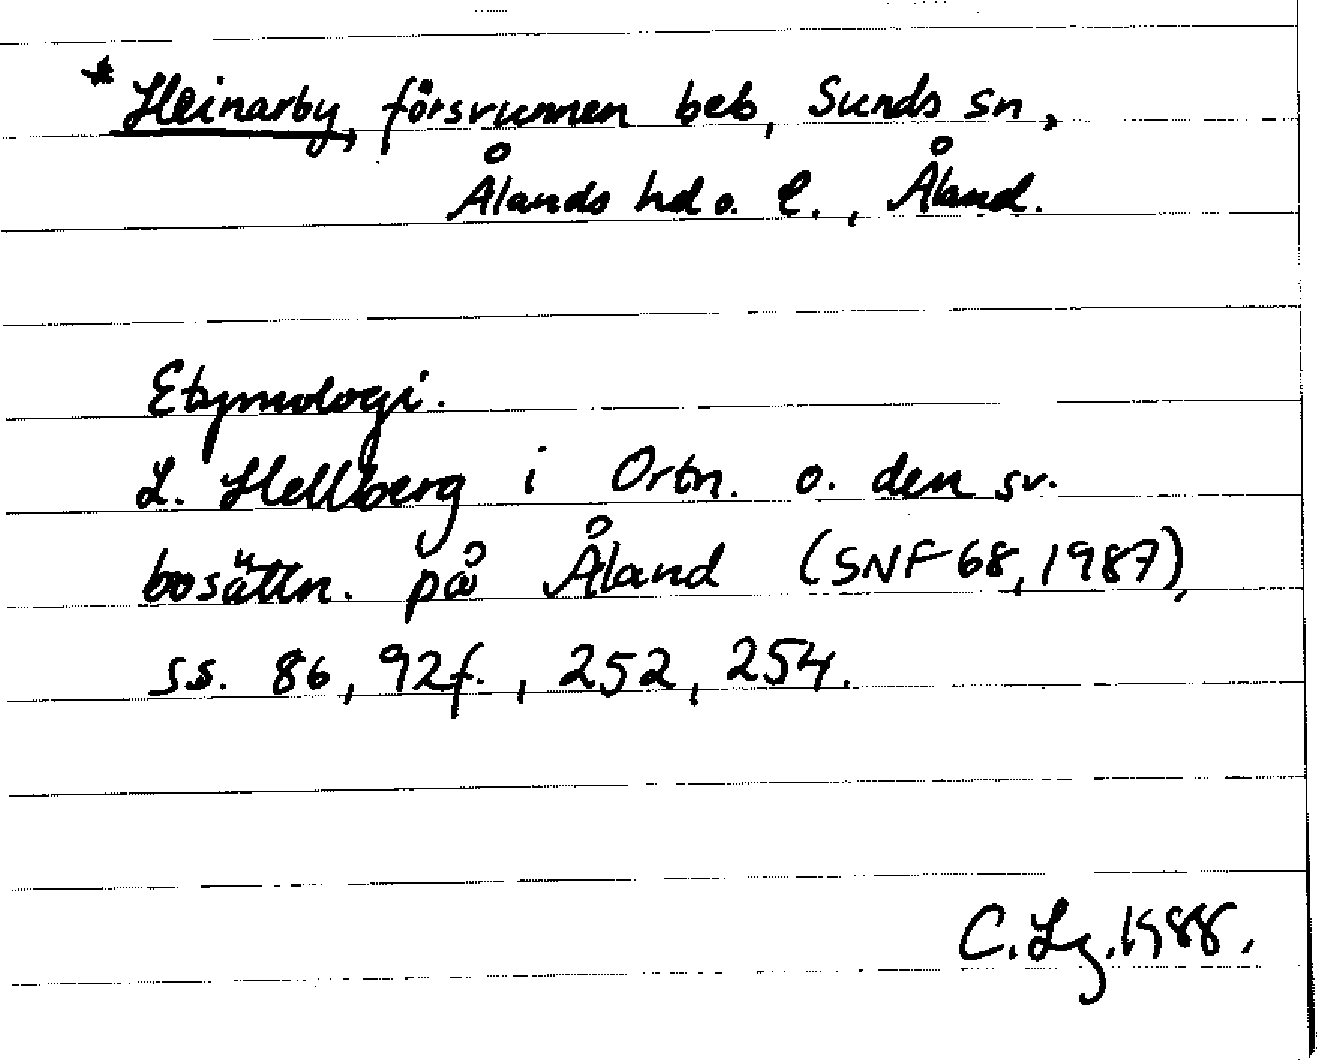 * Heinarby, försvunnen beb, Sunds sn,
Ålands hd o. l., Åland.
Etymologi.
L. Hellberg i Ortn. o. den sv.
bosättn. på Åland (SNF 68, 1987),
ss. 86, 92f., 252, 254.
C. Lg. 1988.